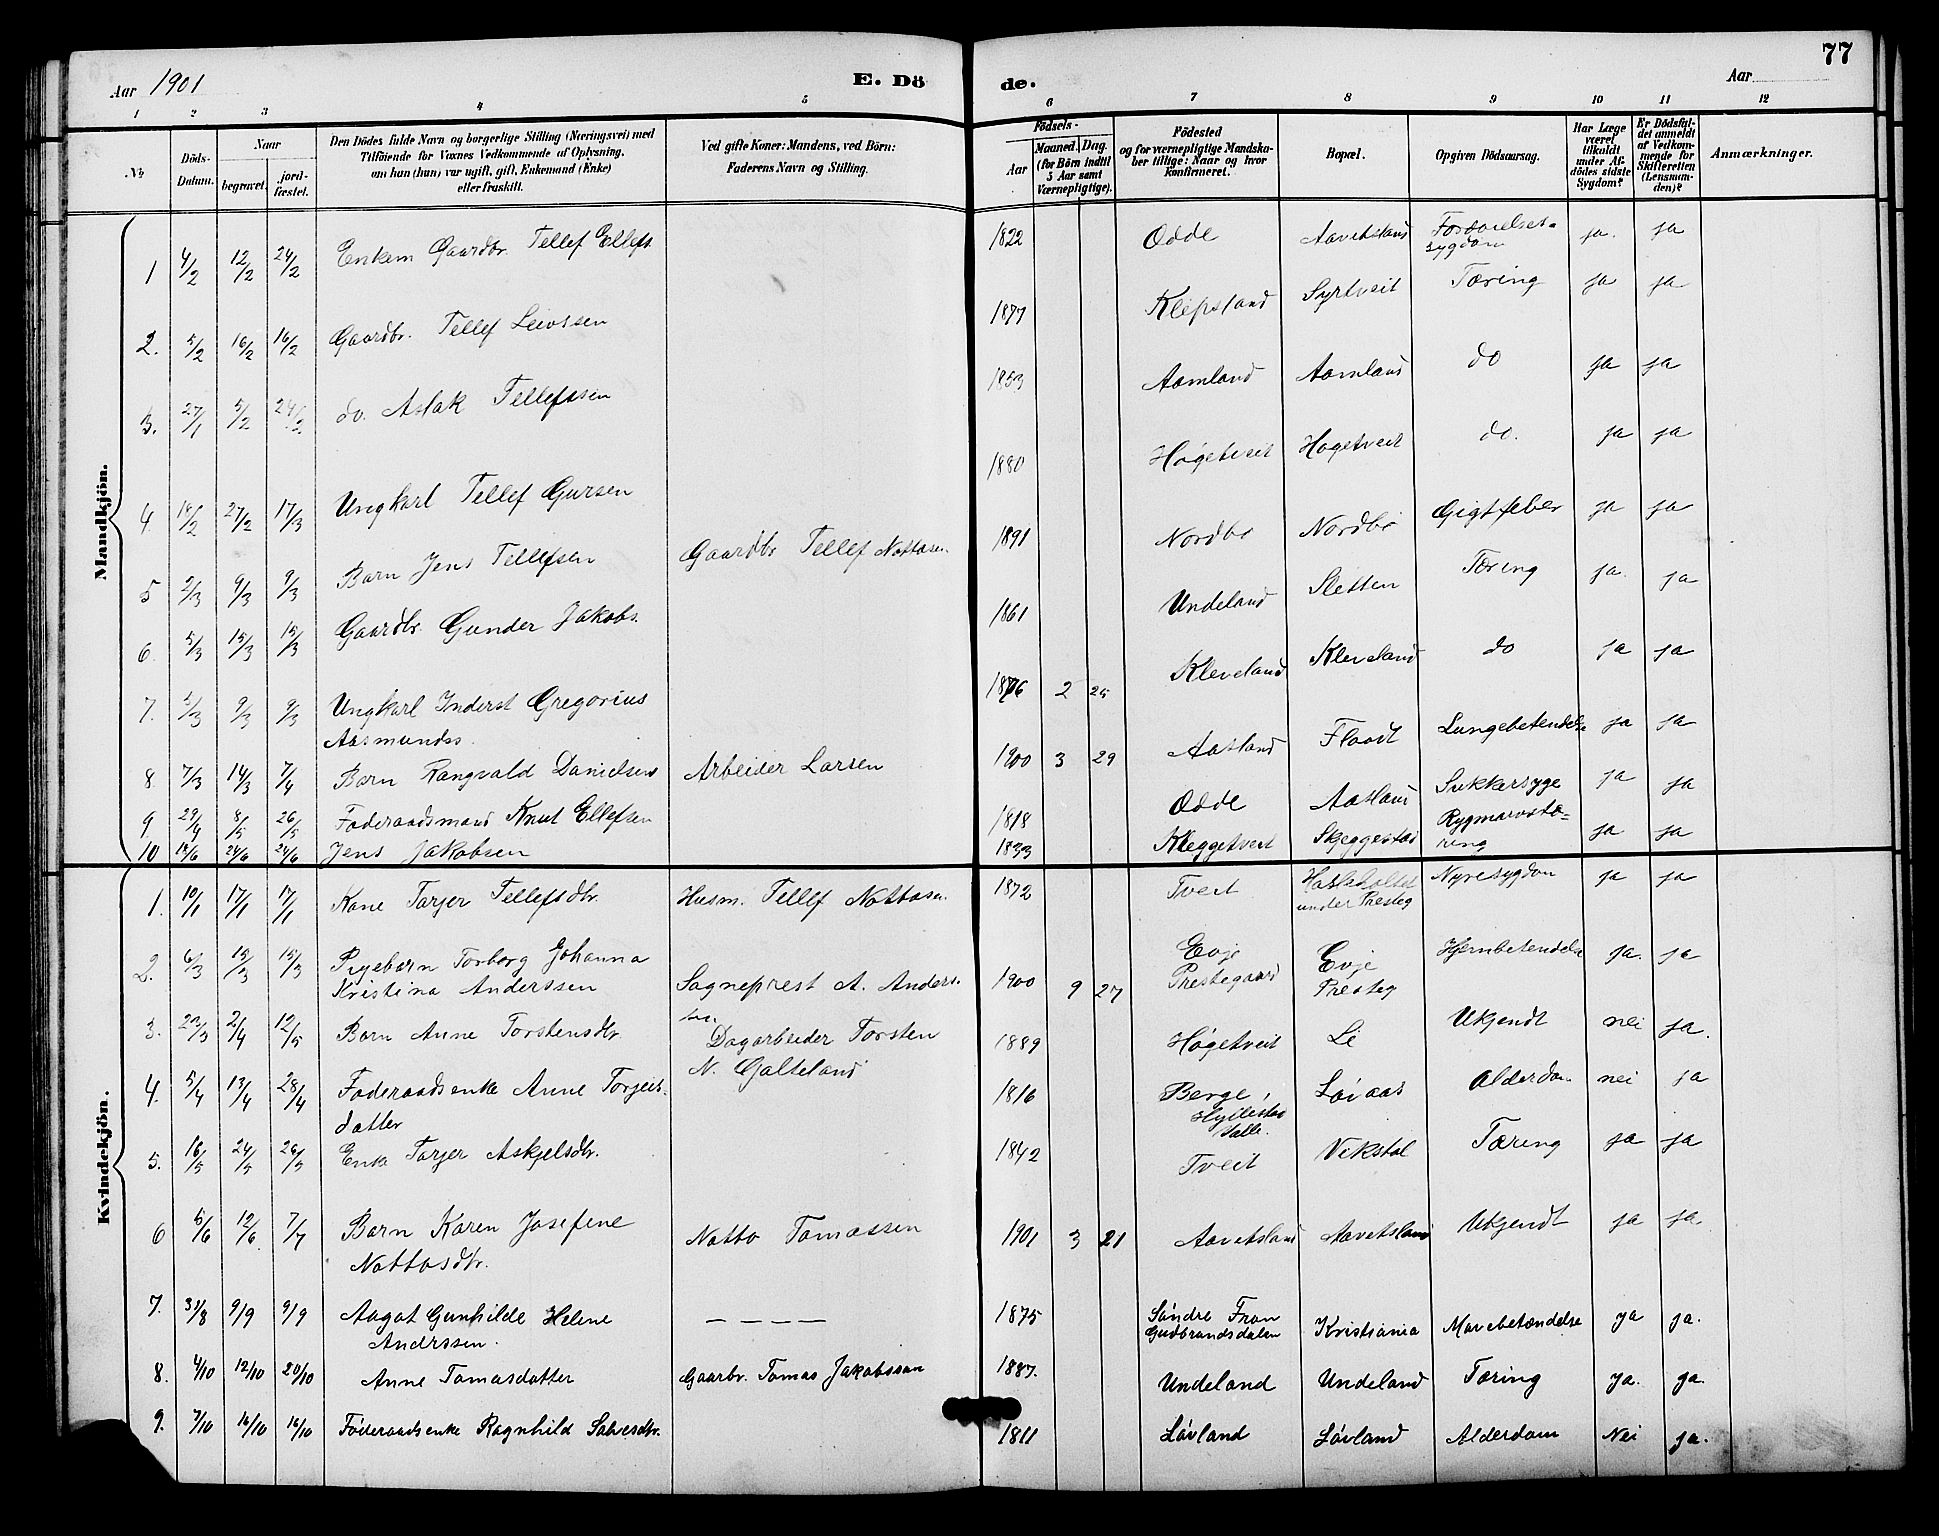 77
Aar 1901
E. Dö
de.
Aar
1 2 3 4 5 6 7 8 9 10 11 12
No
Döds-Datum.
Naar
begravet.
jord-fæstet.
Den Dödes fulde Navn og borgerlige Stilling (Næringsvei) med
Tilföiende for Voxnes Vedkommende af Oplysning,
om han (hun) var ugift, gift, Enkemand (Enke)
eller fraskilt.
Ved gifte Koner: Mandens, ved Börn:
Faderens Navn og Stilling.
Födsels-
Aar
Maaned. Dag.
(for Börn indtil
5 Aar samt
Værnepligtige).
Födested
og for værnepligtige Mandska-
ber tillige: Naar og hvor
Konfirmeret.
Bopæl.
Opgiven Dödsaarsag.
Har Læge
været
tilkaldt
under Af-
dödes sidste
Sygdom?
Er Dödsfal-
det anmeldt
af Vedkom-
mende for
Skifteretten
(Lensman-
den)?
Anmærkninger.
Mandkjön.
1 4/2 12/2 24/2 Enkem Gaardbr. Tellef Ellefs. 1822 Odde Aavitsland Fordøielses-
sygdom ja. ja
2. 5/2 16/2 16/2 Gaardbr. Tellef Leivssen 1877 Klepsland Syrtveit Tæring ja ja
3. 27/1 5/2 24/2 do. Aslak Tellefssen 1853 Aamland Aamland do ja ja
4. 27/2 17/3 Ungkarl Tellef Gursen 1880 Høgetveit Høgetveit do. ja ja
5 2/3 9/3 9/3 Barn Jens Tellefsen Gaardbr Tellef Nottosen. 1891 Nordbø Nordbø Gigtfeber ja ja
6. 5/3 15/3 15/3 Gaardbr. Gunder Jakobs. 1861 Undeland Sletten Tæring ja. ja
7. 9/3 9/3 Ungkarl Inderst Gregorius
Aasmundss. 1876 2 25 Kleveland Kleveland do ja ja
8. 7/3 14/3 7/4 Barn Rangvald Danielsen Arbeider Larsen 1900 3 29 Aasland Flaadt Lungebetendelse ja ja
9 29/4 8/5 26/5 Føderaadsmand Knut Ellefsen 1818 Odde Aasland Sukkersyge ja ja
10 24/6 24/6 Jens Jakobsen 1833 Kleggetveit Skjeggestad Rygmarvstæ-
ring ja ja
Kvindekjön.
1. 10/1 17/1 17/1 Kone Torjer Tellefsdtr. Husm. Tellef Nottosen. 1872 Tveit
under Presteg Nyresygdom ja ja
2. 6/3 15/3 15/3 Pigebarn Torborg Johanna
Kristina Anderssen Sogneprest A. Anders-
sen 1900 9 27 Evje
Prestegaard Evje
Presteg Hjernbetendelse ja. ja
3. 23/3 2/4 12/5 Barn Anne Torstensdtr. Dagarbeider Torsten
N. Galteland 1889 Høgetveit Li Ukjendt nei ja.
4. 5/4 13/4 28/4 Føderaadsenke Anne Torjeis-
datter 1816 Berge,
Hyllestad
Valle. Løvaas Alderdom nei ja
5. 16/5 24/5 26/5 Enke Torjer Askjelsdtr. 1842 Tveit Vikstøl Tæring ja ja
6 12/6. 7/7 Barn Karen Josefine
Nottosdtr. Notto Tomassen 1901 3 21 Aavitsland Aavitsland Ukjendt ja ja
7. 31/8 9/9 9/9 Aagot Gunhilde Helene
Andrssen. — — — — 1875 Søndre Fron
Gudbrandsdalen Kristiania Mavebetændelse ja ja.
8. 4/10 12/10 20/10 Anne Tomasdatter Gaarbr. Tomas Jakobssøn 1887. Undeland Undeland Tæring ja. ja.
9. 7/10 16/10 16/10 Føderaadsenke Ragnhild Salvesdtr. 1811 Løvland Løvland Alderdom Nei ja.